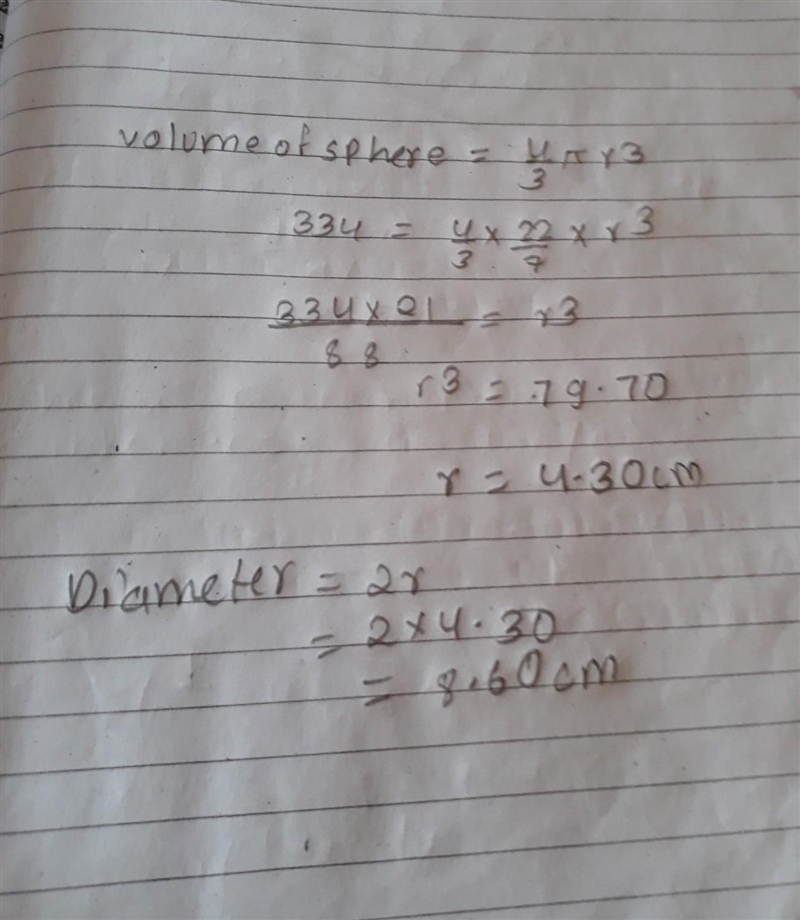 volume of sphere = 4/3 π r3
334 = 4/3 × 22/7 × r3
334 × 21 / 88 = r3
r3 = 79.70
r = 4.30cm
Diameter = 2r
= 2 × 4.30
= 8.60cm